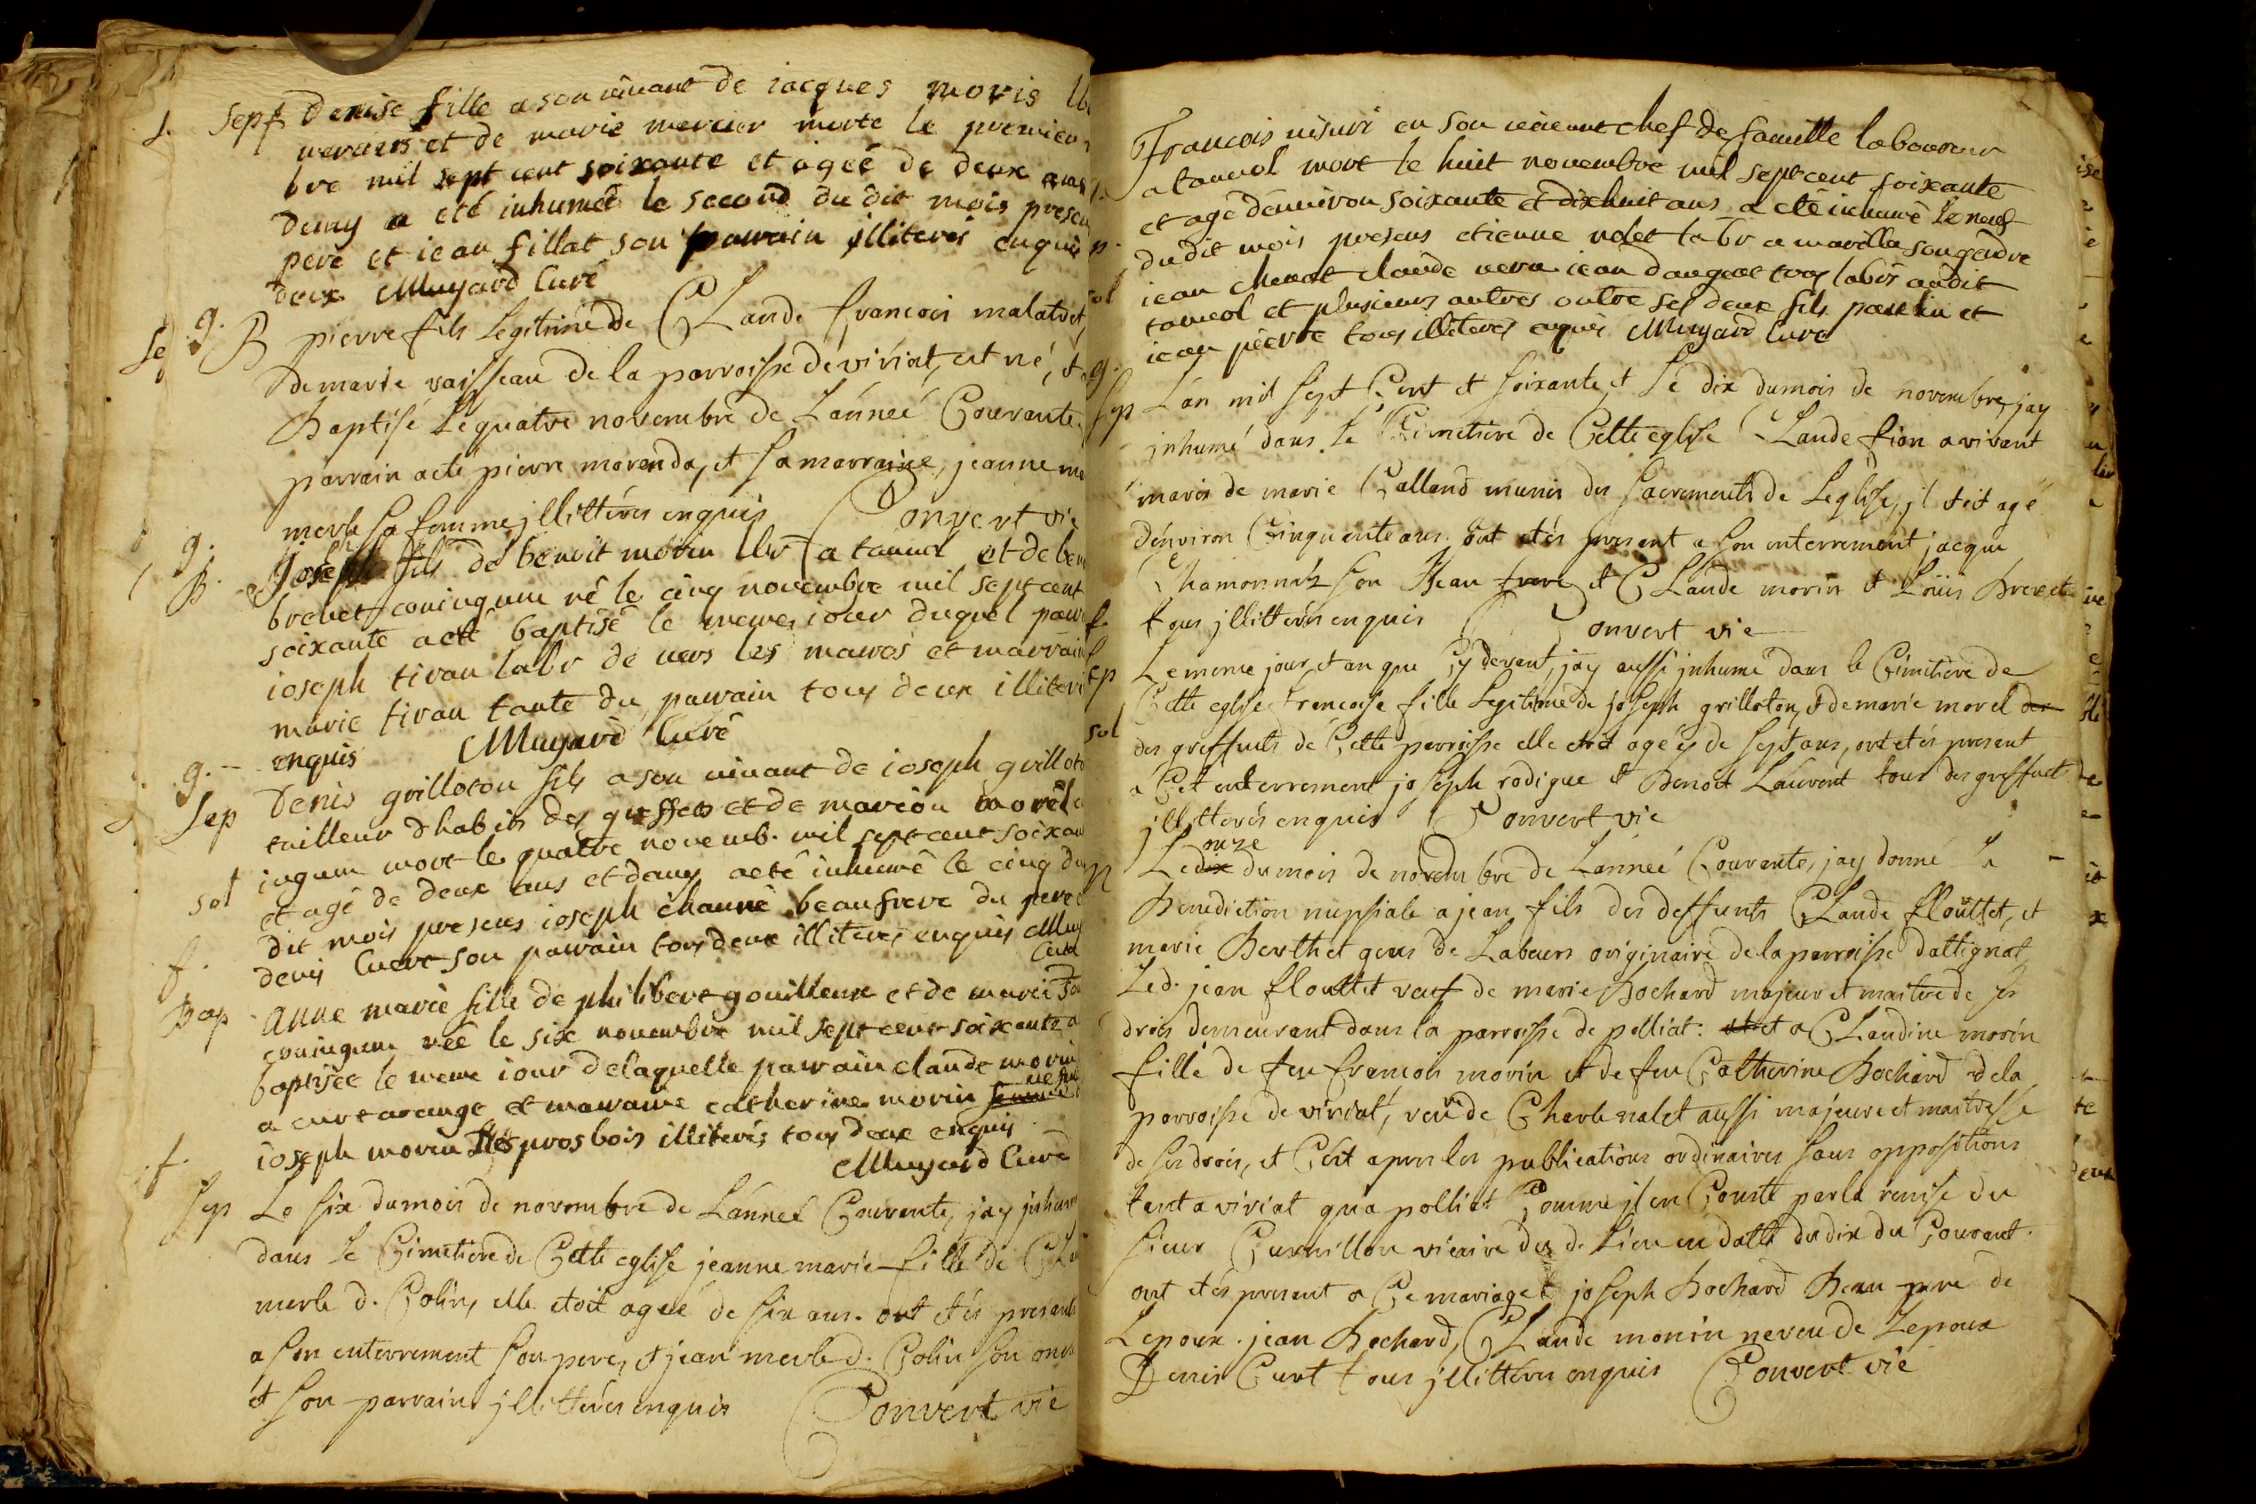 1. sept Denise fille a son vivant de iacques moris lb
verniers et de marie mercier morte le premier
bre mil sept cent soixante et agée de deux ans
demy a eté inhumeé le second du dit mois presen
pere et iean fillat son parrain illiterés enquis
deux Muyard Curé
g. B pierre fils Legitime de Claude francois malatret
de marie vaisseau de la parroisse de viriat, est né, et
Baptisé le quatre novembre de L'anneé Courante.
parrain a eté pierre marenda, et sa marraine, jeanne ma
merle sa femme jllittérés enquis Convert vie
g. B joseph fils de benoit morin lbr a tanvol et de ben
brevet coniugum né le cinq novembre mil sept cent
soixante a eté baptisé le meme iour duquel parr
ioseph tivan labr de vers les mares et marrain
marie tivan tante du parrain tous deux illiteré
enquis Muyard Curé
g. Sep Denis grilloton fils a son vivant de ioseph grilloto
tailleur dhabits des greffets et de marion morel c
sol iugum mort le quatre novemb. mil sept cent soixan
et agé de deux ans et demy a eté inhumé le cinq du
dit mois presens ioseph channé beaufrere du pere
f. denis Curt son parrain tous deux illiterés enquis Muy
Curé
Bap anne marie fille de philibert gouilleux et de marie
coniugum née le six novembre mil sept cent soixante a
baptisée le meme iour de laquelle parrain claude morin
a curtarange et marraine catherine morin femme
f. ioseph morin des gros bois illiterés tous deux enquis
Muyard Curé
Sep Le six du mois de novembre de L'anneé Courante, jay jnhum
dans le Cimetiere de Cette eglise jeanne marie fille de Cl
merle d. Colin, elle etoit ageé de six ans. ont etés presents
a son enterrement son pere, et jean merle d. Colin son oncl
et son parrain jllittérés enquis Convert vie
Francois nisuri en son vivant chef de famille laboureur
a tanvol mort le huit novembre mil sept cent soixante
et agé denviron soixante et dixhuit ans a eté inhumé le neuf
du dit mois presens etienne nolet labr a marilla son gendre
iean chenat claude vera iean dangeot tous labrs audit
tanvol et plusieurs autres outre ses deux fils paulin et
iean pierre tous illiterés enquis Muyard Curé
g. Sep L'an mil sept Cent et soixante, et le dix du mois de novembre, jay
jnhumé dans le Cimetiere de Cette eglise Claude fion a vivant
maris de marie Galland munis des sacrements de Leglise, jl etoit agé
d'environ Cinquante ans. ont etés present a son enterrement jacque
Chamonnard son Beau frere et Claude morin et Loüis Brevet
tous jllittérés enquis Convert vie
Sep Le meme jour, et an que Cy devant, jay aussi jnhumé dans le Cimetiere de
Cette eglise francoise fille Legitime de joseph grilloton, et de marie morel des
sol des greffiets de Cette parroisse elle etoit ageé de sept ans, ont etés present
a Cet enterrement joseph rodigue et Benoit Laurent tous des greffiet
jllittérés enquis Convert vie
onze
Le dix du mois de novembre de L'anneé Courante, jay donné la
Benediction nupsiale a jean fils des deffunts Claude floüttet, et
marie Berthet gens de Labeurs originaire de la parroisse d'attignat
Led. jean flouttet veuf de marie Bochard majeur et maitre de ses
drois demeurant dans la parroisse de polliat: et et a Claudine morin
fille de feu francois morin et de feu Catherine Bochard de la
parroisse de viriat, veuve de Charle nalet aussi majeure et maitresse
de ses drois, et C'est apres les publications ordinaires sans oppositions
tant a viriat qu'a polliat Comme jl en Conste par la remise du
sieur Curnillon vicaire du d. Lieu en datte du dix du Courant.
ont etés present a Ce mariage joseph Bochard Beau pere de
Lepoux. jean Bochard, Claude monin neveu de Lepoux
Denis Curt tous jllittérés enquis Convert vie